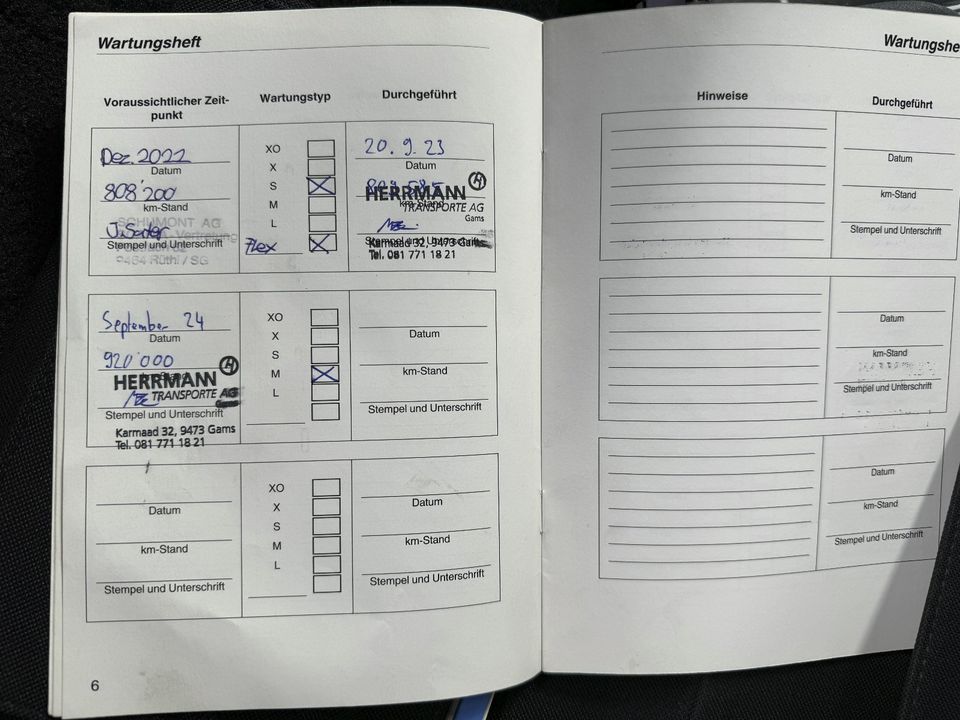 Wartungsheft
Voraussichtlicher Zeit-
punkt
Wartungstyp
Durchgeführt
Dez. 2022
Datum
808'200
km-Stand
SCHUMONT AG
Stempel und Unterschrift
9464 Rüthi / SG
XO
X
S
M
L
Flex
20. 9. 23
Datum
HERRMANN
km-Stand
TRANSPORTE AG
Gams
Karmaad 32, 9473 Gams
Tel. 081 771 18 21
September 24
Datum
920'000
HERRMANN
TRANSPORTE AG
Stempel und Unterschrift
Karmaad 32, 9473 Gams
Tel. 081 771 18 21
XO
X
S
M
L
Datum
km-Stand
Stempel und Unterschrift
Datum
km-Stand
Stempel und Unterschrift
XO
X
S
M
L
Datum
km-Stand
Stempel und Unterschrift
6
Wartungshe
Hinweise
Durchgeführt
Datum
km-Stand
Stempel und Unterschrift
Datum
km-Stand
Stempel und Unterschrift
Datum
km-Stand
Stempel und Unterschrift